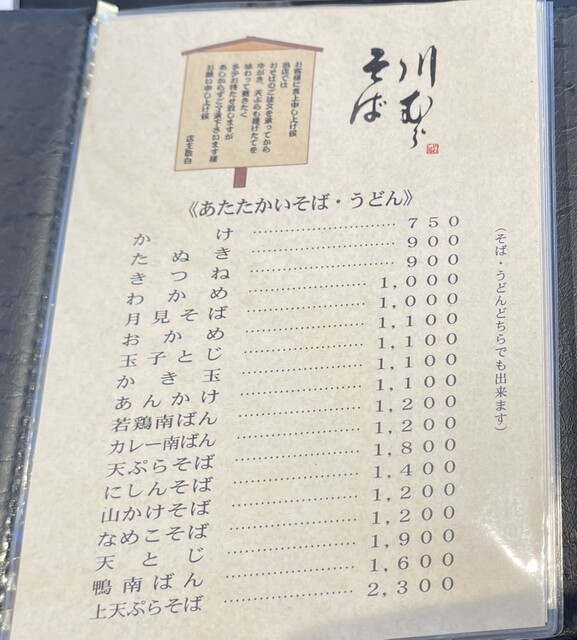 川むら
そば
お客様に言上申し上げ候
当店では
おそばのご注文を承ってから
ゆがき、天ぷらも揚げたてを
味わって戴きたく
多少お待たせ致しますが
あしからずご了承下さいます様
お願い申し上げ候
店主敬白
《あたたかいそば・うどん》
(そば・うどんどちらでも出来ます)
かけ 750
たぬき 900
きつね 900
わかめ 1,000
月見そば 1,000
おかめ 1,100
玉子とじ 1,100
かき玉 1,100
あんかけ 1,100
若鶏南ばん 1,200
カレー南ばん 1,200
天ぷらそば 1,800
にしんそば 1,400
山かけそば 1,200
なめこそば 1,200
天とじ 1,900
鴨南ばん 1,600
上天ぷらそば 2,300